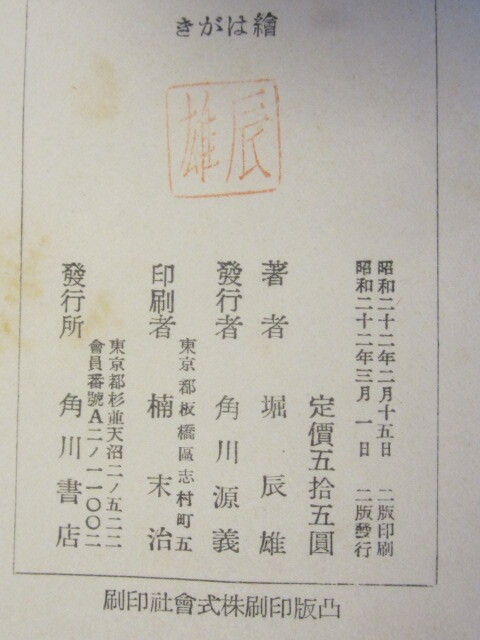 繪はがき
辰雄
昭和二十二年二月十五日 二版印刷
昭和二十二年三月一日 二版發行
定價五拾五圓
著者 堀辰雄
發行者 角川源義
東京都板橋區志村町五
印刷者 楠末治
東京都杉並天沼二ノ五二二
會員番號A二ノ一一〇〇二
發行所 角川書店
凸版印刷株式會社印刷